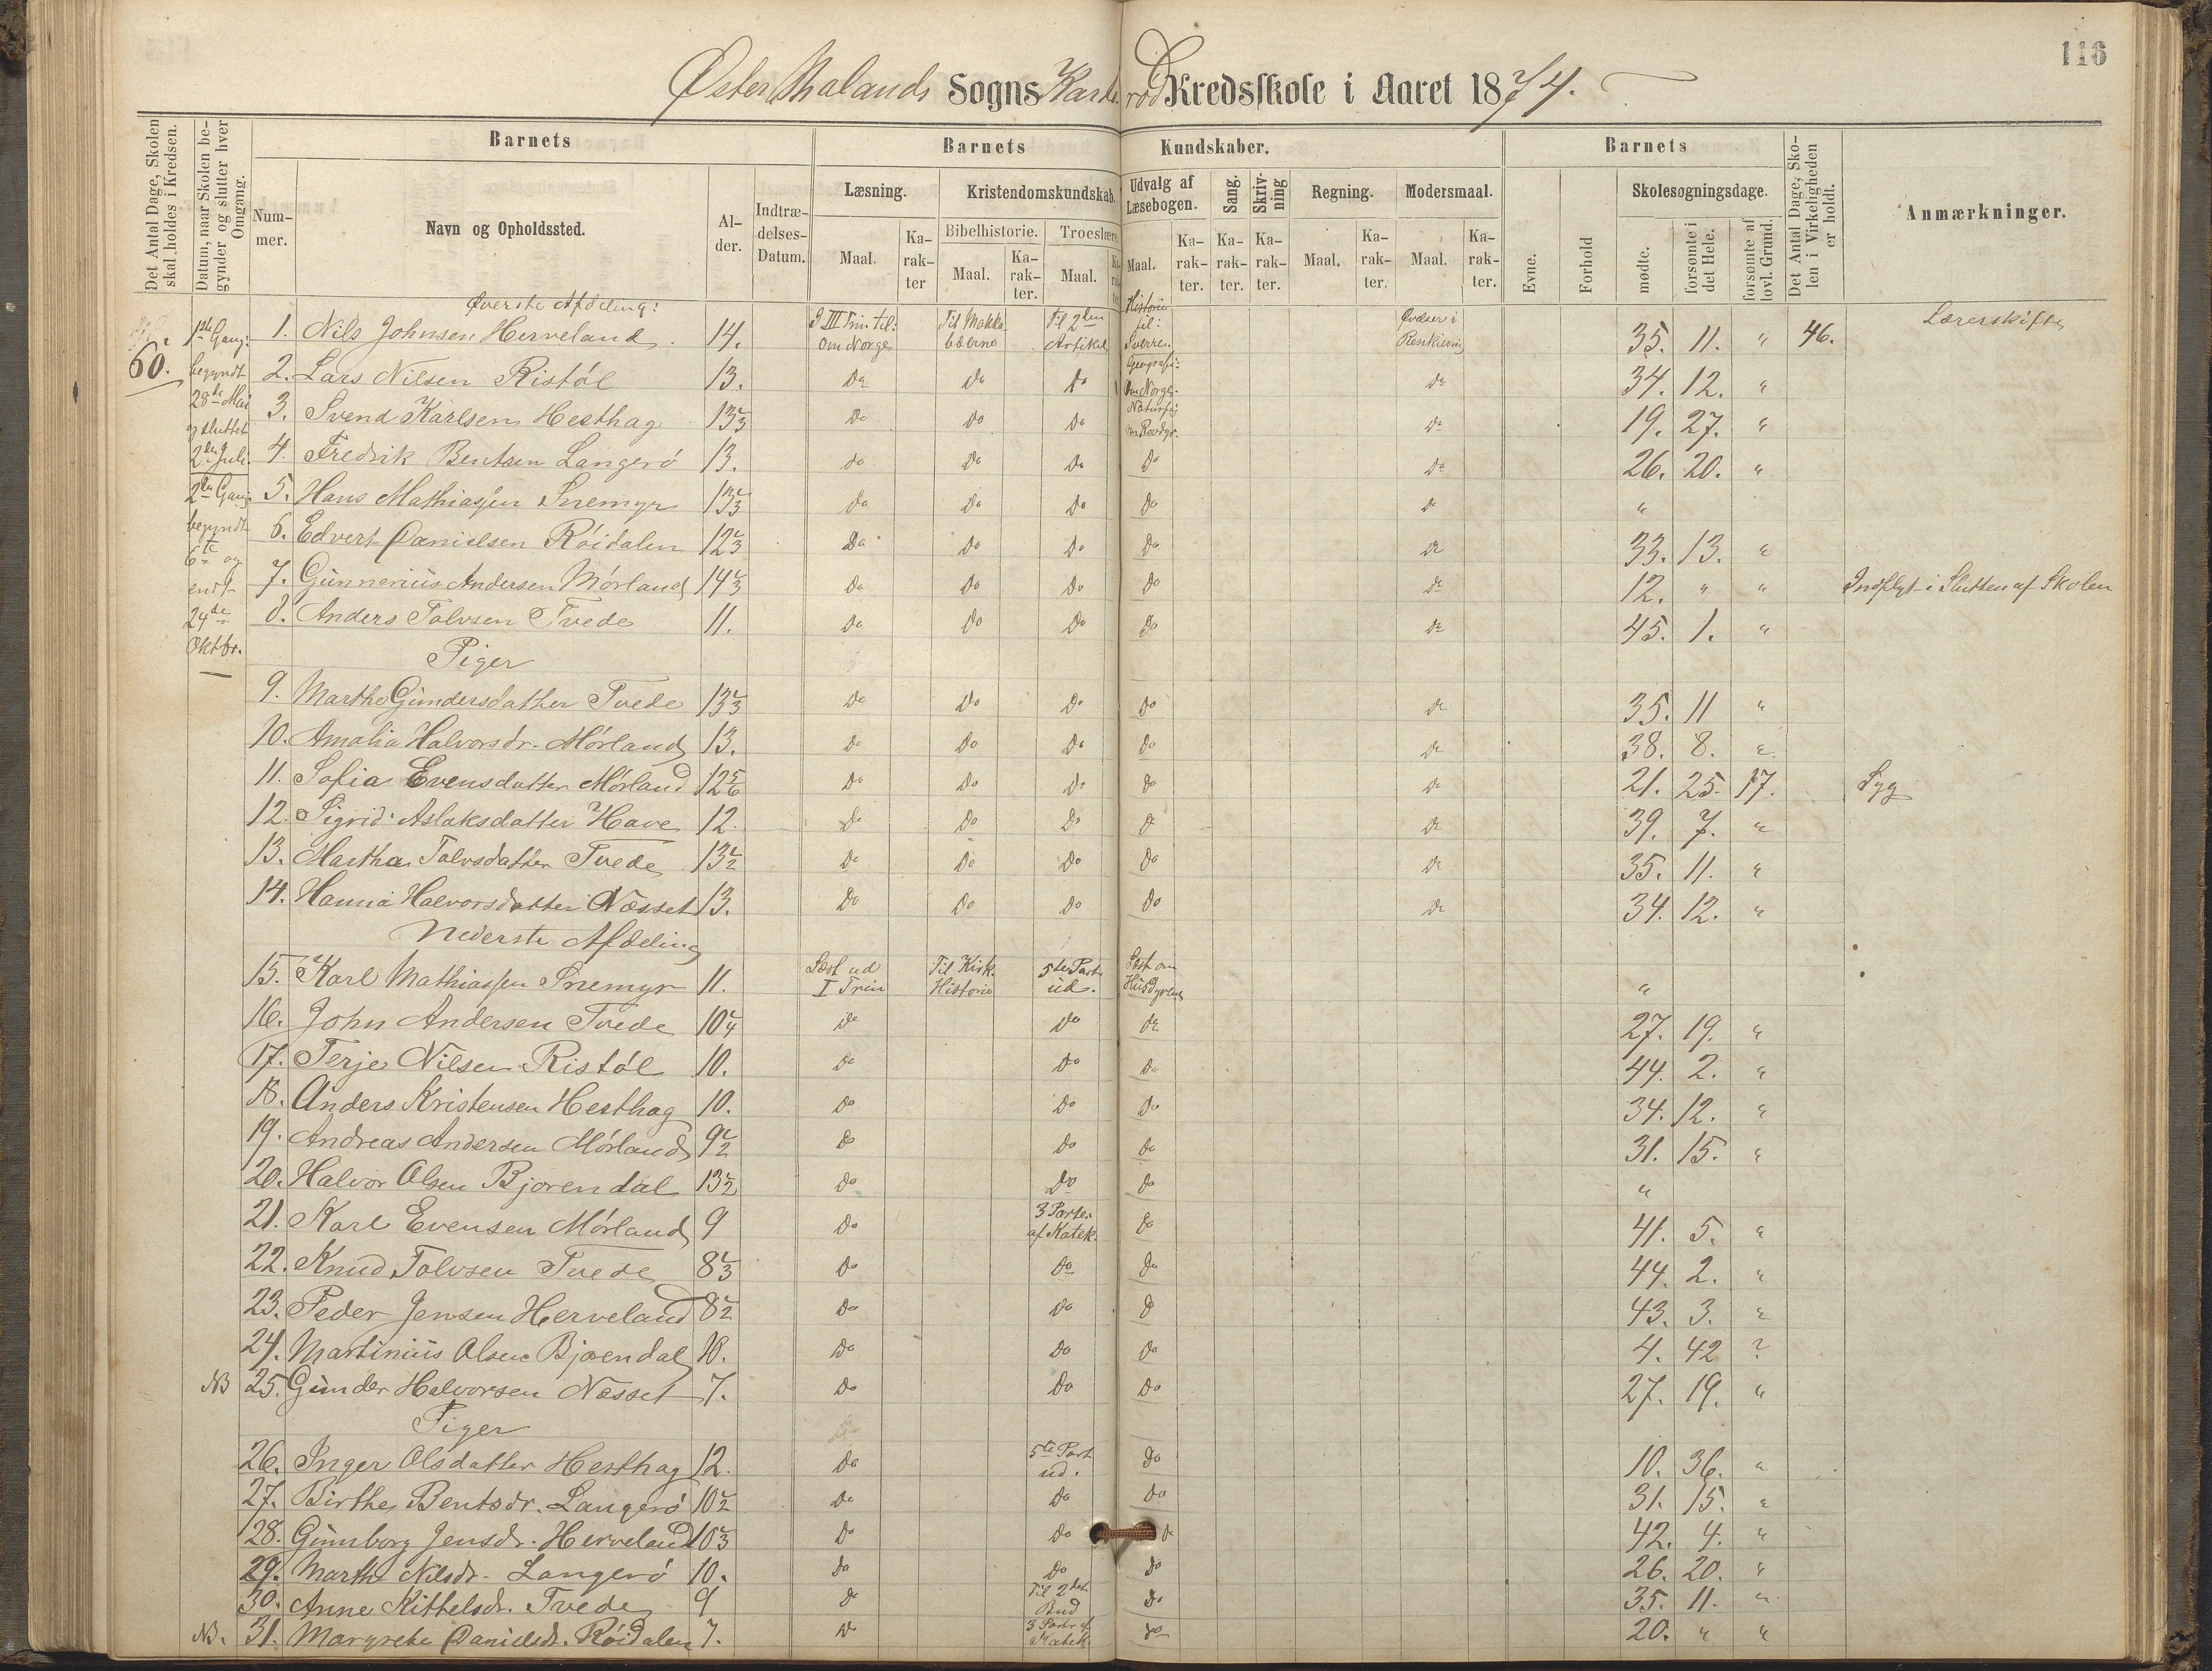 116
Øster Molands Sogns Kredsskole i Aaret 1874.
Det Antal Dage, Skolen skal holdes i Kredsen.
Datum, naar Skolen begynder og slutter hver Omgang.
Barnets
Barnets Kundskaber.
Barnets
Det Antal Dage, Skolen i Virkeligheden er holdt.
Anmærkninger.
Nummer.
Navn og Opholdssted.
Alder.
Indtrædelses-Datum.
Læsning.
Kristendomskundskab.
Udvalg af Læsebogen.
Sang.
Skrivning
Regning.
Modersmaal.
Evne.
Forhold
Skolesøgningsdage.
Bibelhistorie.
Troeslære.
Maal. Karakter
Maal. Karakter.
Maal.
Maal. Karakter.
Karakter.
Karakter.
Maal. Karakter.
Maal. Karakter.
mødte.
forsømte i det Hele.
forsømte af lovl. Grund.
60.
1ste Gang:
begyndt
28de Mai
og sluttet
2den Juli.
2den Gang
begyndt
6te og
endt
24de
Oktbr.
Øverste Afdeling:
Lærerskifte
1. Nils Johnsen Herveland. 14. I III Trin til: Om Norge Til Makkabæerne Til 2den Artikel Historie til: Sverre. Øvelser i Retskrivning 35. 11. " 46.
2. Lars Nilsen Ristøl 13. Do Do Do Geografi: Om Norge. Do 34. 12. "
3. Svend Karlsen Hesthag 13 2/3 Do Do Do Naturh: om Rovdyr. Do 19. 27. "
4. Fredrik Bentsen Langerø 13. Do Do Do Do Do 26. 20. "
5. Hans Mathiassen Snemyr 13 2/3 Do Do Do Do Do "
6. Edvert Danielsen Røidalen 12 2/3 Do Do Do Do Do 33. 13. "
7. Gunnerius Andersen Mørland 14 2/3 Do Do Do Do Do 12. " " Indflyt i Slutten af Skolen
8. Anders Tolvsen Tvede 11. Do Do Do Do Do 45. 1. "
Piger
9. Marthe Gundersdatter Tvede 13 2/3 Do Do Do Do Do 35. 11 "
10. Amalia Halvorsdr. Mørland 13. Do Do Do Do Do 38. 8. "
11. Sofia Evensdatter Mørland 12 5/6 Do Do Do Do Do 21. 25. 17. Syg
12. Sigrid Aslaksdatter Have 12. Do Do Do Do Do 39. 7. "
13. Martha Tolvsdatter Tvede 13 1/2 Do Do Do Do Do 35. 11. "
14. Hanna Halvorsdatter Næsset 13. Do Do Do Do Do 34. 12. "
Nederste Afdeling
15. Karl Mathiassen Snemyr 11. Læst ud I Trin Til Kirk. Historie 5te Part ud. Læst om Husdyrene "
16. John Andersen Tvede 10 1/4 Do Do Do 27. 19. "
17. Terje Nilsen Ristøl 10. Do Do Do 44. 2. "
18. Anders Kristensen Hesthag 10. Do Do Do 34. 12. "
19. Andreas Andersen Mørland 9 1/2 Do Do Do 31. 15. "
20. Halvor Olsen Bjorendal 13 1/2 Do Do Do "
21. Karl Evensen Mørland 9 Do 3 Parter af Katek. Do 41. 5. "
22. Knud Tolvsen Tvede 8 2/3 Do Do Do 44. 2. "
23. Peder Jensen Herveland 8 1/2 Do Do Do 43. 3. "
24. Martinius Olsen Bjorendal 10. Do Do Do 4. 42 ?
NB 25. Gunder Halvorsen Næsset 7. Do Do Do 27. 19. "
Piger
26. Inger Olsdatter Hesthag 12. Do 5te Part ud. Do 10. 36. "
27. Birthe Bentsdr. Langerø 10 1/2 Do Do Do 31. 15. "
28. Gunborg Jensdr. Herveland 10 2/3 Do Do Do 42. 4. "
29. Marthe Nilsdr. Langerø 10. Do Do Do 26. 20. "
30. Anne Kittelsdr. Tvede 9 Do Til 2det Bud Do 35. 11. "
NB. 31. Margrethe Danielsdr. Røidalen 7. Do 3 Parter af Katek. Do 20. " "